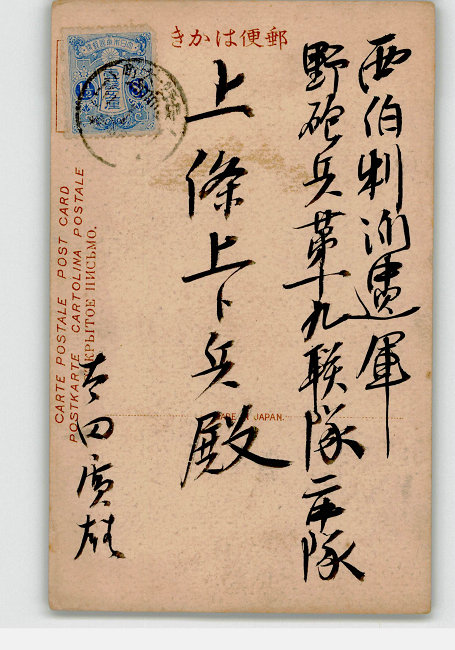 郵便はかき
西伯利派遣軍
野砲兵第十九联隊二中隊
上條上ト兵殿
太田廣雄
CARTE POSTALE POST CARD
POSTKARTE CARTOLINA POSTALE
ОТКРЫТОЕ ПИСЬМО.
MADE IN JAPAN.